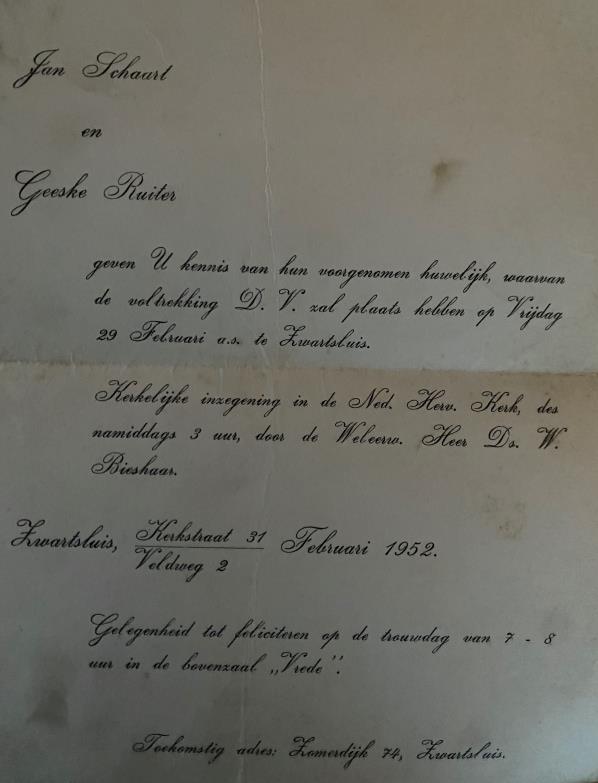 Jan Schaart
en
Geeske Ruiter
geven U kennis van hun voorgenomen huwelijk, waarvan
de voltrekking D. V. zal plaats hebben op Vrijdag
29 Februari a.s. te Zwartsluis.
Kerkelijke inzegening in de Ned. Herv. Kerk, des
namiddags 3 uur, door de Weleerw. Heer Ds. W.
Bieshaar.
Zwartsluis, Kerkstraat 31 Februari 1952.
Veldweg 2
Gelegenheid tot feliciteren op de trouwdag van 7 - 8
uur in de bovenzaal „Vrede”.
Toekomstig adres: Zomerdijk 74, Zwartsluis.